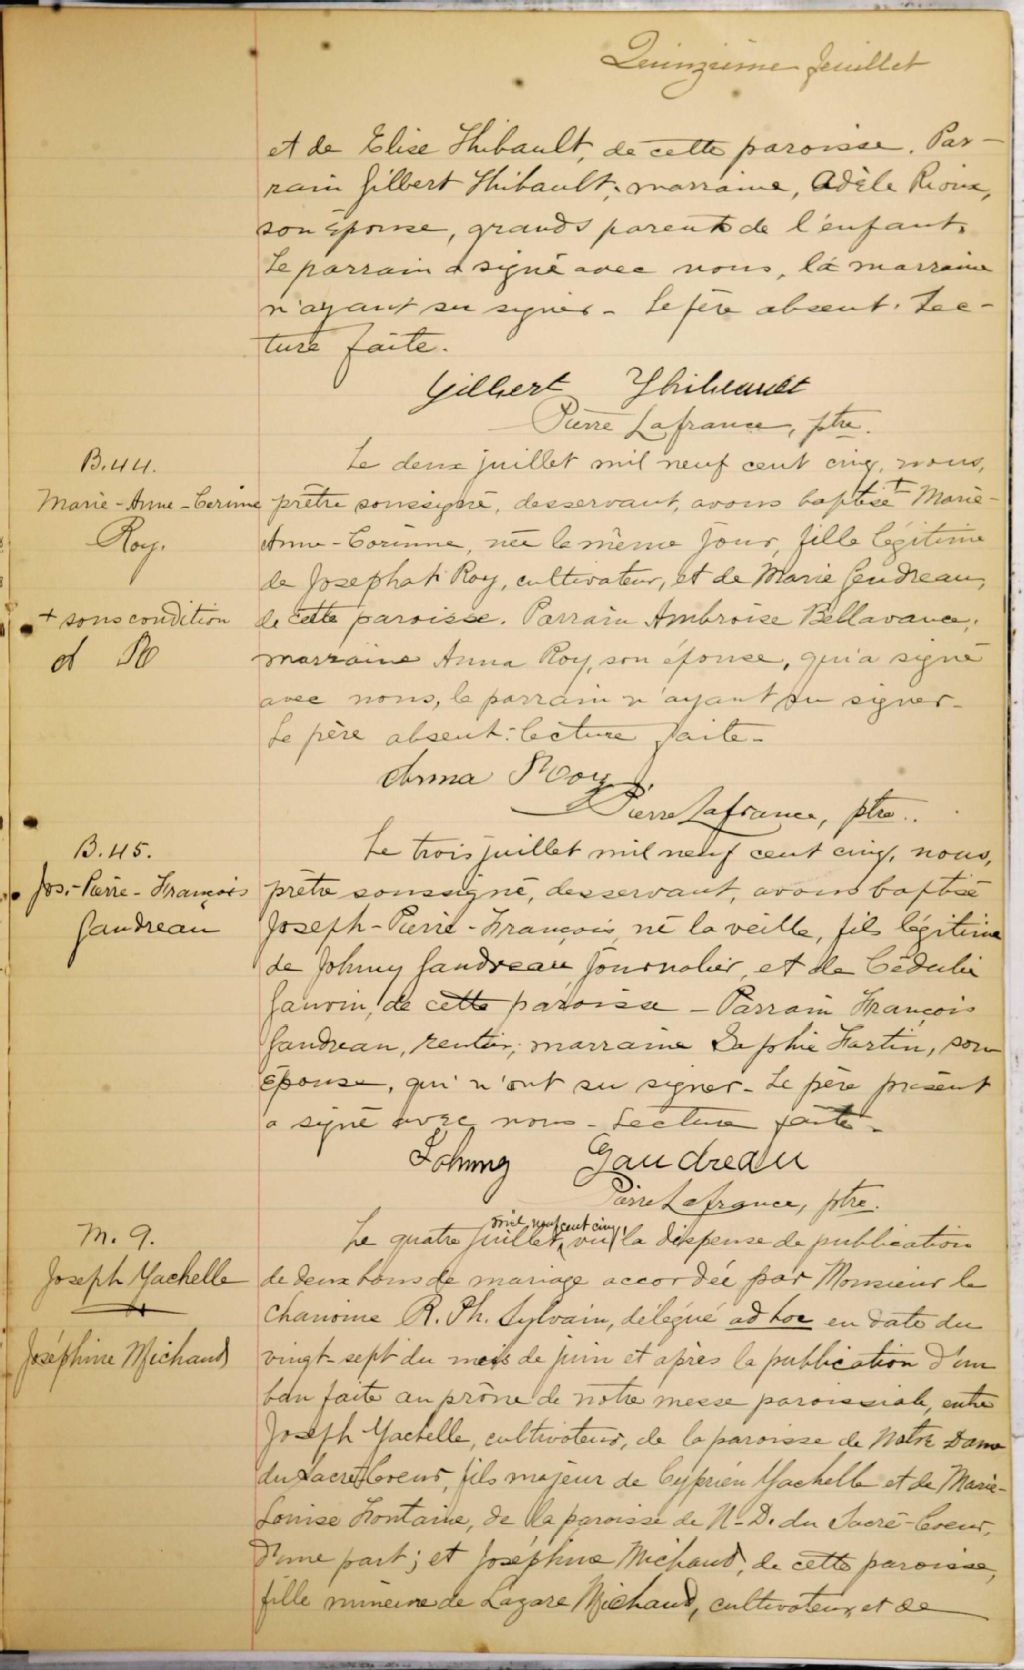 Quinzième feuillet
et de Elise Thibault, de cette paroisse. Par-
rain Gilbert Thibault, marraine, Adèle Rioux,
son épouse, grands parents de l'enfant.
Le parrain a signé avec nous, la marraine
n'ayant su signer - Le père absent. Lec-
ture faite.
Gilbert Thibeault
Pierre Lafrance, ptre.
B. 44.
Marie-Anne-Corinne
Roy.
+ sous condition
Le deux juillet mil neuf cent cinq, nous,
prêtre soussigné, desservant, avons baptisé + Marie-
Anne-Corinne, née le même jour, fille légitime
de Josephat Roy, cultivateur, et de Marie Gendreau,
de cette paroisse. Parrain Ambroise Bellavance,
marraine Anna Roy, son épouse, qui a signé
avec nous, le parrain n'ayant su signer -
Le père absent: lecture faite -
Anna Roy
Pierre Lafrance, ptre.
B. 45.
Jos.-Pierre-François
Gaudreau
Le trois juillet mil neuf cent cinq, nous,
prêtre soussigné, desservant, avons baptisé
Joseph-Pierre-François, né la veille, fils légitime
de Johnny Gaudreau journalier, et de Cédulie
Gauvin, de cette paroisse - Parrain François
Gaudreau, rentier, marraine Sophie Fortin, son
épouse, qui n'ont su signer - Le père présent
a signé avec nous - Lecture faite -
Johnny Gaudreau
Pierre Lafrance, ptre.
M. 9.
Joseph Yachelle
&
Joséphine Michaud
Le quatre juillet mil neuf cent cinq, vu la dispense de publication
de deux bans de mariage accordée par Monsieur le
chanoine R. Ph. Sylvain, délégué ad hoc en date du
vingt-sept du mois de juin et après la publication d'un
ban faite au prône de notre messe paroissiale, entre
Joseph Yachelle, cultivateur, de la paroisse de Notre Dame
du Sacré Coeur, fils majeur de Cyprien Yachelle et de Marie-
Louise Fontaine, de la paroisse de N-D. du Sacré-Coeur,
d'une part; et Joséphine Michaud, de cette paroisse,
fille mineure de Lazare Michaud, cultivateur, et de